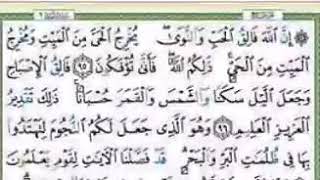 إِنَّ ٱللَّهَ فَالِقُ ٱلْحَبِّ وَٱلنَّوَىٰ يُخْرِجُ ٱلْحَيَّ مِنَ ٱلْمَيِّتِ وَمُخْرِجُ
ٱلْمَيِّتِ مِنَ ٱلْحَيِّ ذَٰلِكُمُ ٱللَّهُ فَأَنَّىٰ تُؤْفَكُونَ ٩٥ فَالِقُ ٱلْإِصْبَاحِ
وَجَعَلَ ٱلَّيْلَ سَكَنًا وَٱلشَّمْسَ وَٱلْقَمَرَ حُسْبَانًا ذَٰلِكَ تَقْدِيرُ
ٱلْعَزِيزِ ٱلْعَلِيمِ ٩٦ وَهُوَ ٱلَّذِي جَعَلَ لَكُمُ ٱلنُّجُومَ لِتَهْتَدُوا۟
بِهَا فِي ظُلُمَٰتِ ٱلْبَرِّ وَٱلْبَحْرِ قَدْ فَصَّلْنَا ٱلْءَايَٰتِ لِقَوْمٍ يَعْلَمُونَ